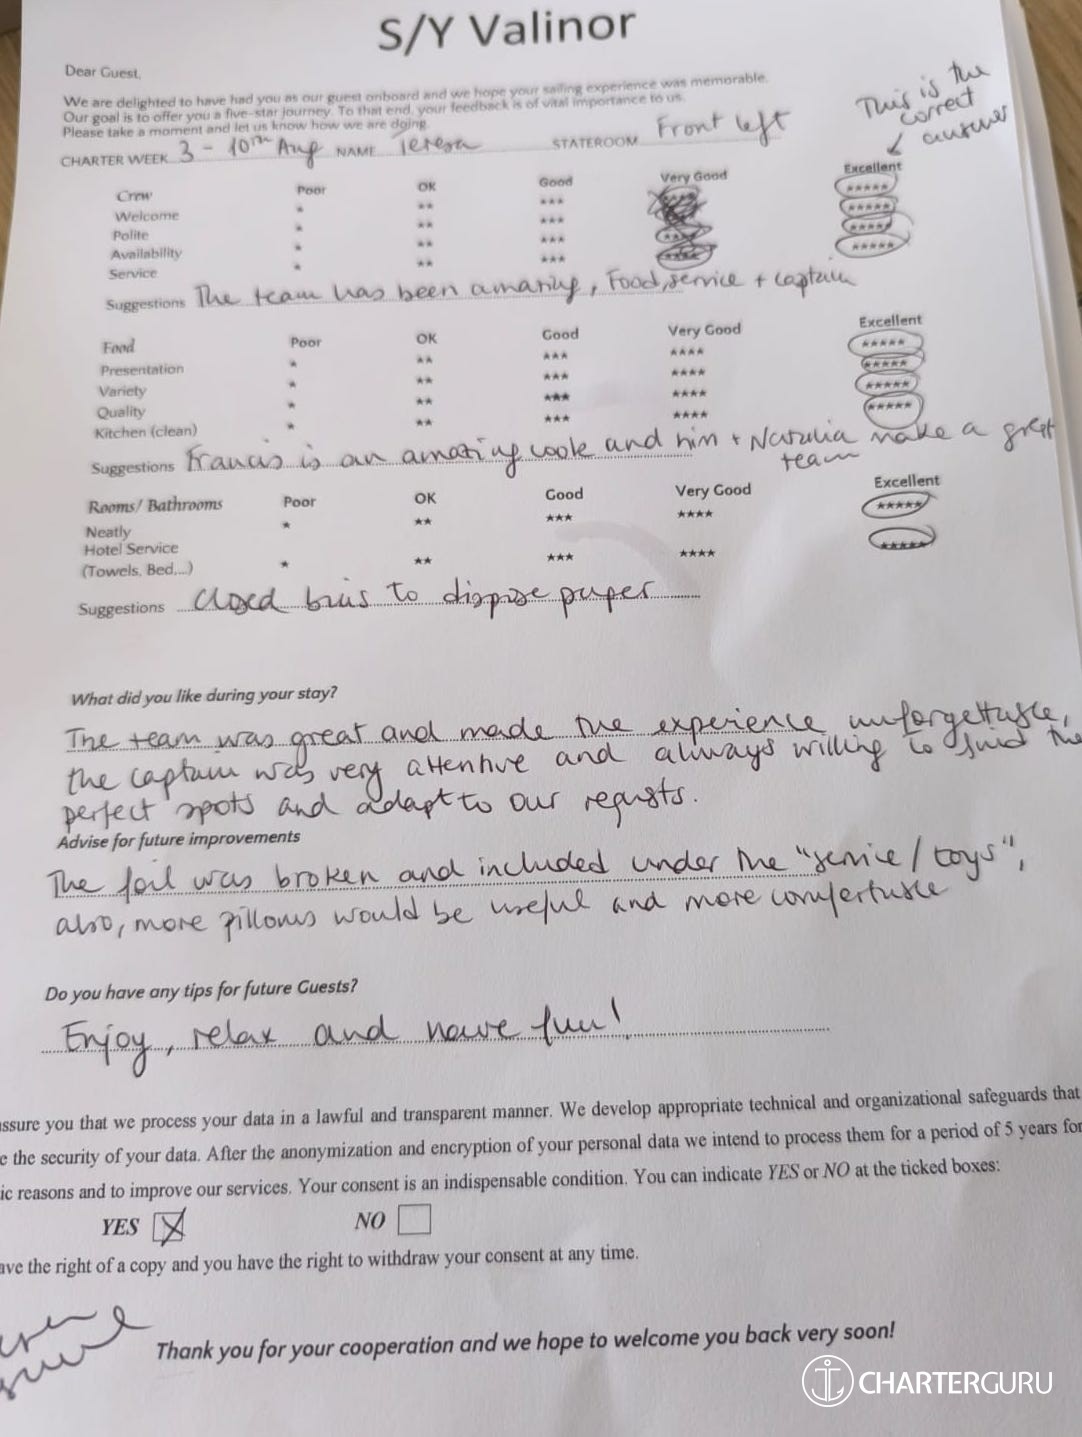 S/Y Valinor
Dear Guest,
We are delighted to have had you as our guest onboard and we hope your sailing experience was memorable.
Our goal is to offer you a five-star journey. To that end, your feedback is of vital importance to us.
Please take a moment and let us know how we are doing.
This is the
correct
answer
CHARTER WEEK 3 - 10th Aug NAME Teresa STATEROOM Front left
Crew Poor OK Good Very Good Excellent
Welcome * ** *** *****
Polite * ** *** *****
Availability * ** *** *****
Service * ** *** *****
Suggestions The team has been amazing, Food, service + captain
Food Poor OK Good Very Good Excellent
Presentation * ** *** **** *****
Variety * ** *** **** *****
Quality * ** *** **** *****
Kitchen (clean) * ** *** **** *****
Suggestions Francis is an amazing cook and him + Natalia make a great
team
Rooms/ Bathrooms Poor OK Good Very Good Excellent
Neatly * ** *** **** *****
Hotel Service
(Towels, Bed,...) * ** *** **** *****
Suggestions Closed bins to dispose paper
What did you like during your stay?
The team was great and made the experience unforgettable,
the captain was very attentive and always willing to find the
perfect spots and adapt to our requests.
Advise for future improvements
The foil was broken and included under the "service/toys",
also, more pillows would be useful and more comfortable
Do you have any tips for future Guests?
Enjoy, relax and have fun!
assure you that we process your data in a lawful and transparent manner. We develop appropriate technical and organizational safeguards that
e the security of your data. After the anonymization and encryption of your personal data we intend to process them for a period of 5 years for
ic reasons and to improve our services. Your consent is an indispensable condition. You can indicate YES or NO at the ticked boxes:
YES X NO
ave the right of a copy and you have the right to withdraw your consent at any time.
Thank you for your cooperation and we hope to welcome you back very soon!
CHARTERGURU